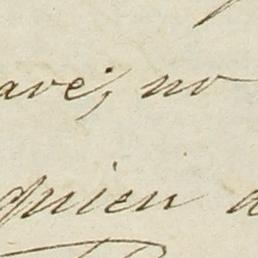 ave; no
quien a